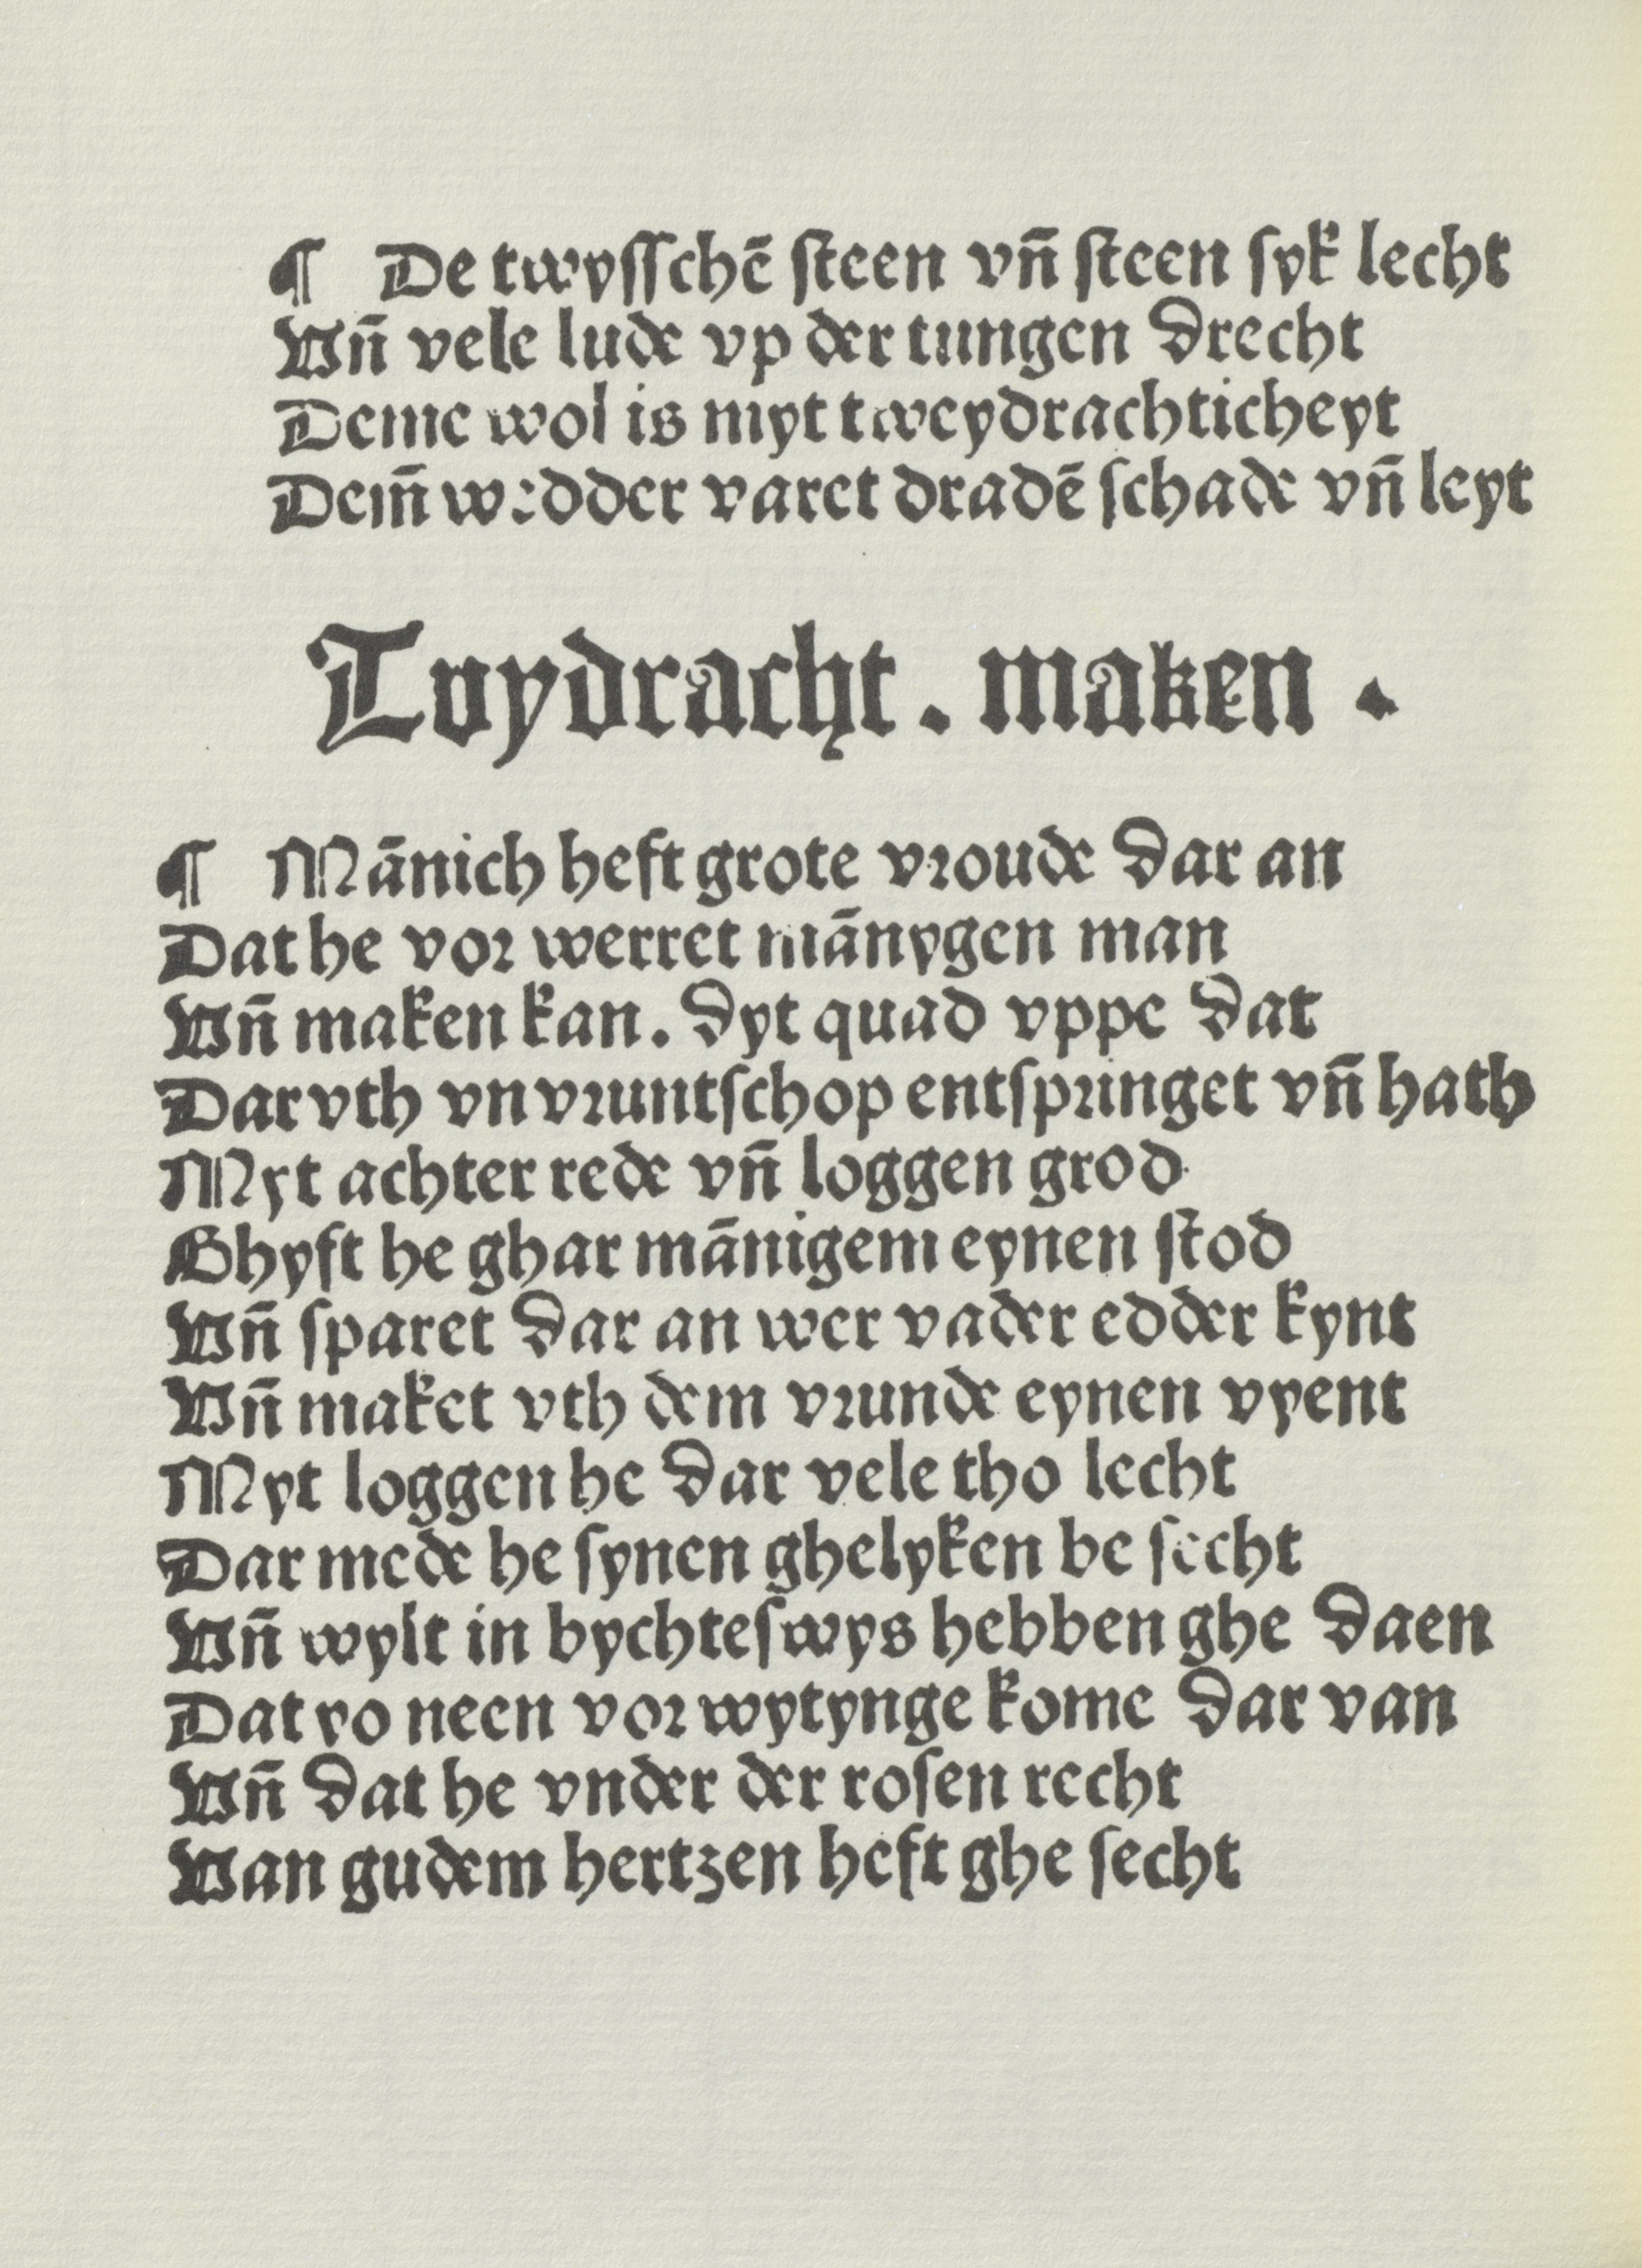 ¶ De twyſſchē ſteen vñ ſteen ſyk lecht
Vñ vele lude vp der tungen drecht
Deme wol is myt tweydrachticheyt
Dem̄ wedder varet dradē ſchade vñ leyt
Tvydracht . maken .
¶ Mānich heft grote vꝛoude dar an
Dat he voꝛ werret mānygen man
Vñ maken kan. dyt quad vppe dat
Dar vth vnvꝛuntſchop entſpꝛinget vñ hath
Myt achter rede vñ loggen grod
Ghyft he ghar mānigem eynen ſtod
Vñ ſparet dar an wer vader edder kynt
Vñ maket vth dem vꝛunde eynen vyent
Myt loggen he dar vele tho lecht
Dar mede he ſynen ghelyken be ſecht
Vñ wylt in bychteſwys hebben ghe daen
Dat yo neen voꝛwytynge kome dar van
Vñ dat he vnder der roſen recht
Van gudem hertzen heft ghe ſecht